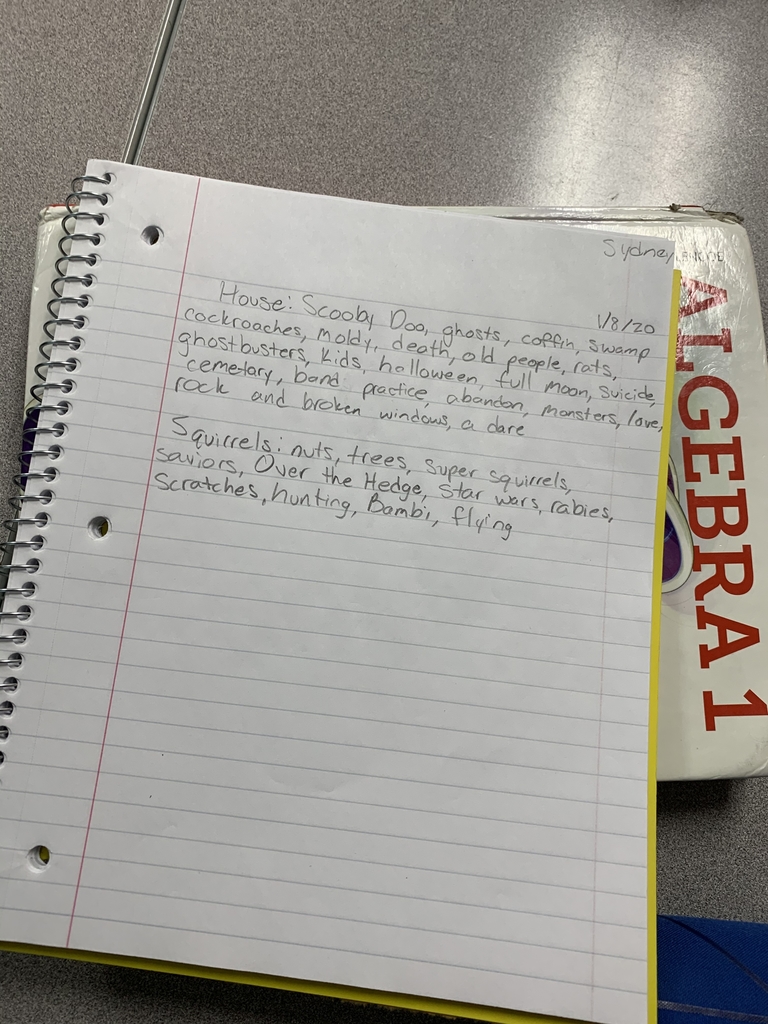 Sydney
1/8/20
House: Scooby Doo, ghosts, coffin, swamp
cockroaches, moldy, death, old people, rats,
ghostbusters, kids, halloween, full moon, suicide,
cemetary, band practice, abandon, monsters, love,
rock and broken windows, a dare
Squirrels: nuts, trees, super squirrels,
saviors, Over the Hedge, Star wars, rabies,
Scratches, hunting, Bambi, flying
ALGEBRA 1